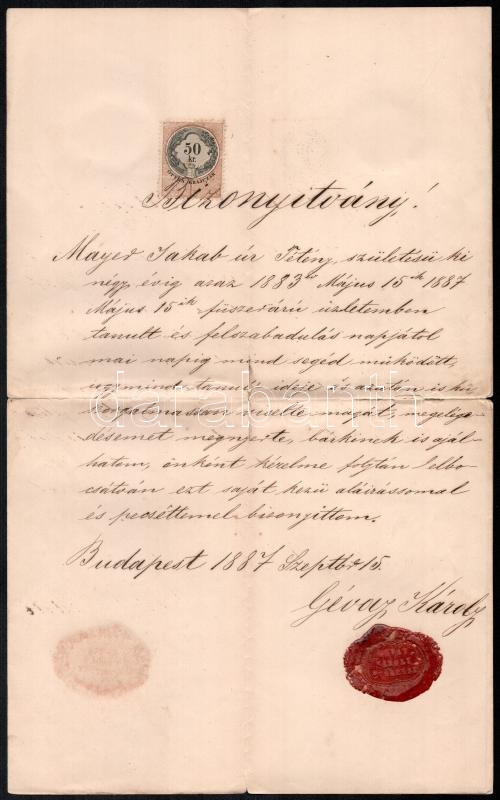 50
kr.
Bizonyitvány!
Mayer Jakab úr Tétény születésü ki
négy évig azaz 1883 Május 15ik 1887
Május 15ik füszerárú üzletemben
tanult és felszabadulás napjától
mai napig mind segéd müködött,
ugymind tanuló ideje és azután is hű
szorgalmassan viselte magát, megelége-
désemet megnyerte, bárkinek is ajál-
hatom, önként kérelme folytán elbo-
csátván ezt saját kezü aláirássommal
és pecséttemel bizonyittom.
Budapest 1887 Szeptbr 15.
Gévay Károly
darabanth